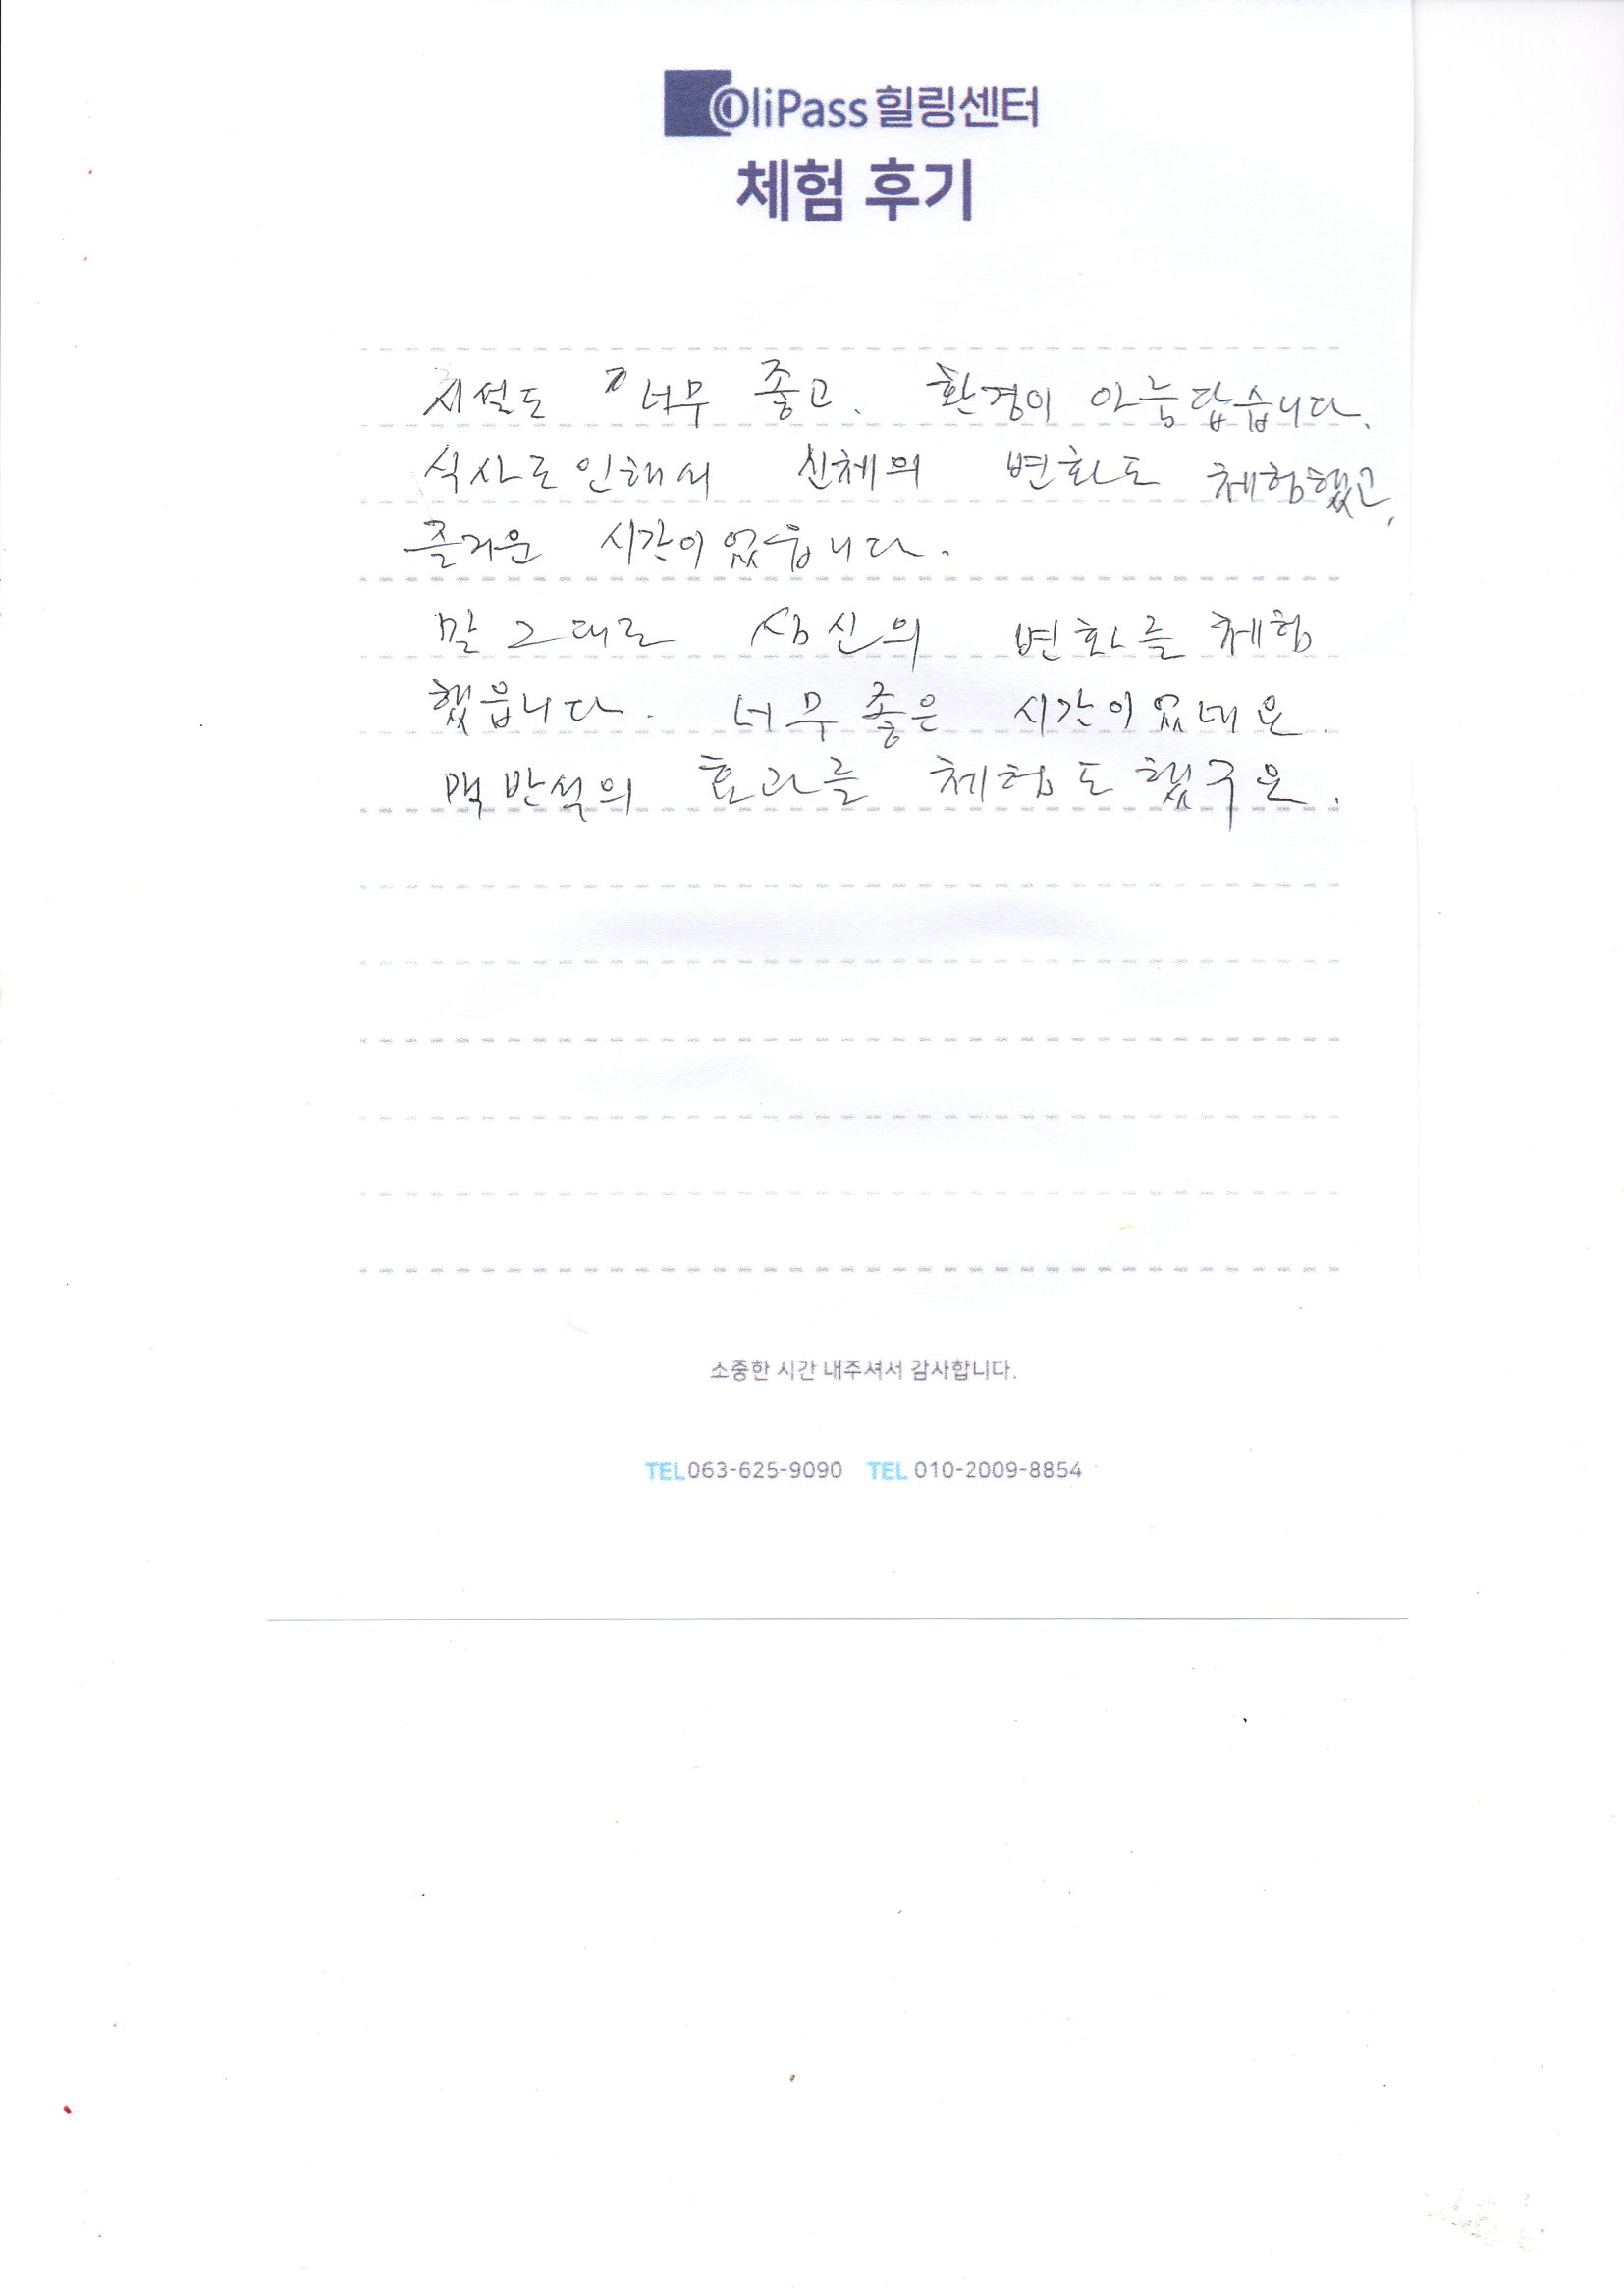 OliPass 힐링센터
체험 후기
시설도 너무 좋고. 환경이 아름답습니다.
식사로 인해서 신체의 변화도 체험했고,
즐거운 시간이었습니다.
말 그대로 심신의 변화를 체험
했읍니다. 너무 좋은 시간이었네요.
맥반석의 효과를 체험도 했구요.
소중한 시간 내주셔서 감사합니다.
TEL 063-625-9090 TEL 010-2009-8854